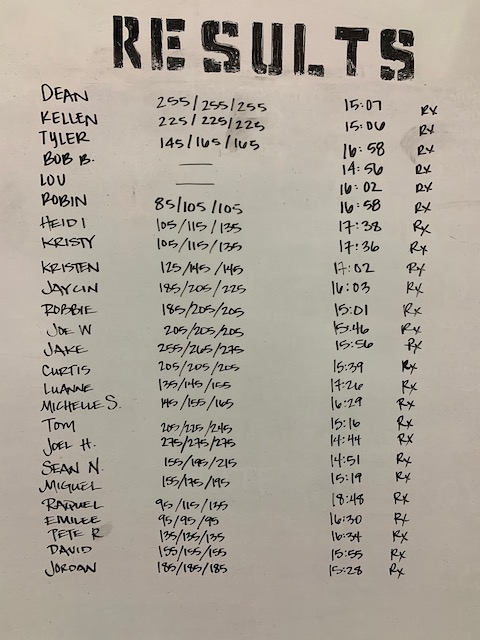 RESULTS
DEAN 255/255/255 15:07 Rx
KELLEN 225/225/225 15:06 Rx
TYLER 145/165/165 16:58 Rx
BOB B. — 14:56 Rx
LOU — 16:02 Rx
ROBIN 85/105/105 16:58 Rx
HEIDI 105/115/135 17:38 Rx
KRISTY 105/115/135 17:36 Rx
KRISTEN 125/145/145 17:02 Rx
JAYCIN 185/205/225 16:03 Rx
ROBBIE 185/205/205 15:01 Rx
JOE W 205/205/205 15:46 Rx
JAKE 255/265/275 15:56 Rx
CURTIS 205/205/205 15:39 Rx
LUANNE 135/145/155 17:26 Rx
MICHELLE S. 145/155/165 16:29 Rx
TOM 205/225/245 15:16 Rx
JOEL H. 275/275/275 14:44 Rx
SEAN N. 155/195/215 14:51 Rx
MIGUEL 155/175/195 15:19 Rx
RAQUEL 95/115/135 18:48 Rx
EMILEE 95/95/95 16:30 Rx
PETE R 135/135/135 16:34 Rx
DAVID 155/155/155 15:55 Rx
JORDAN 185/185/185 15:28 Rx